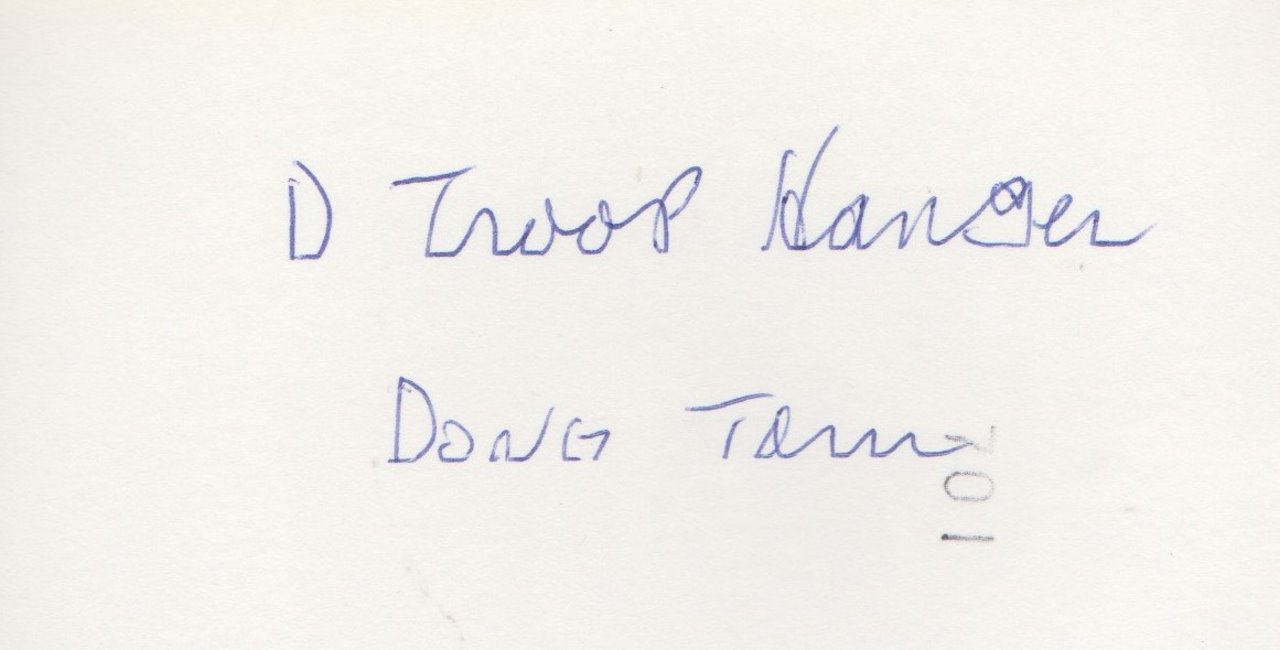 D Troop Hanger
Dong Tam